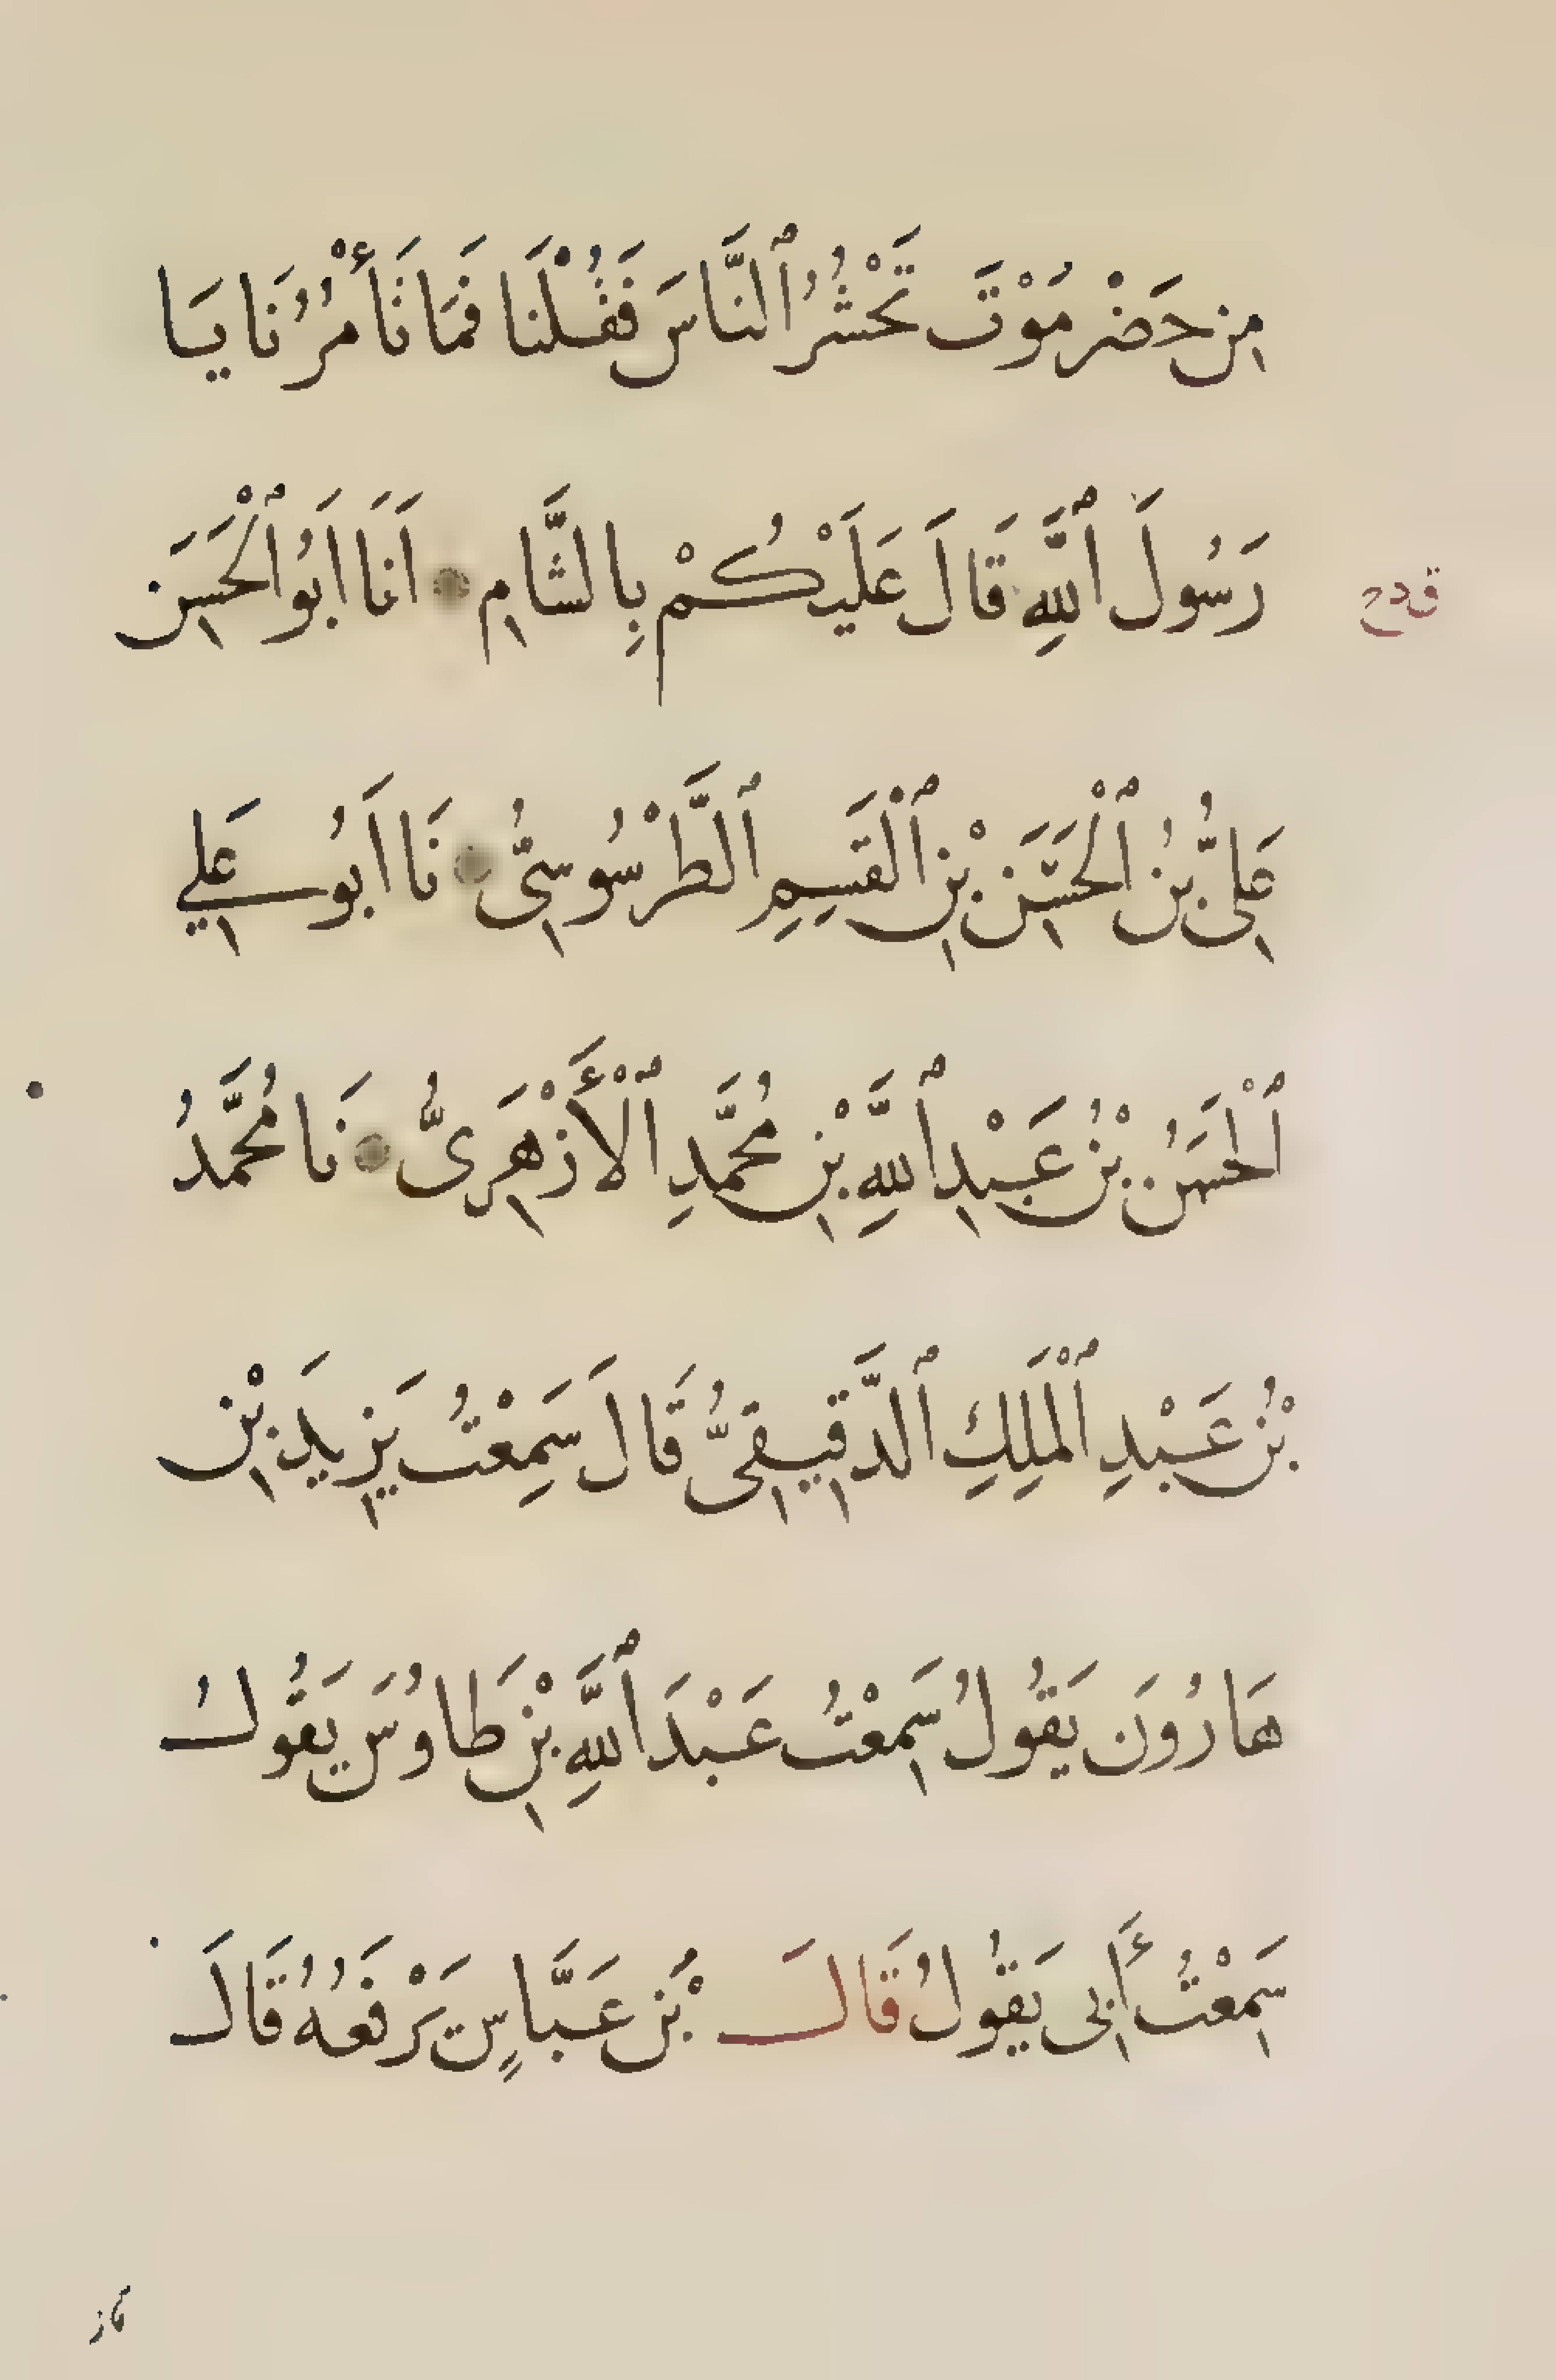 مِن حَضْرمَوْتَ تَحْشُرُ ٱلنَّاسَ فَقُلْنَا فَمَا تَأْمُرُنَا يَا
رَسُولَ ٱللَّهِ قَالَ عَلَيْكُمْ بِالشَّامِ اَنَا اَبُو ٱلْحَسَن
قدح
عَلِىُّ بنُ ٱلْحَسَن بْنِ ٱلْقَسِمِ ٱلطَّرْسُوسِىُّ نَا اَبُو عَلِي
ٱلْحَسَنُ بْنُ عَبْدِ ٱللَّهِ بْنِ مُحَمَّدِ ٱلْأَزْهَرِىُّ نَا مُحَمَّدُ
بْنُ عَبْدِ ٱلْمَلِكِ ٱلدَّقِيقِىُّ قَالَ سَمِعْتُ يَزِيدَ بْنِ
هَارُونَ يَقُولُ سَمِعْتُ عَبْدَ ٱللَّهِ بْنِ طَاوُسَ يَقُولُ
سَمِعْتُ أَبِى يَقُولُ قَالَ بْنُ عَبَّاسٍ يَرْفَعُهُ قَالَ